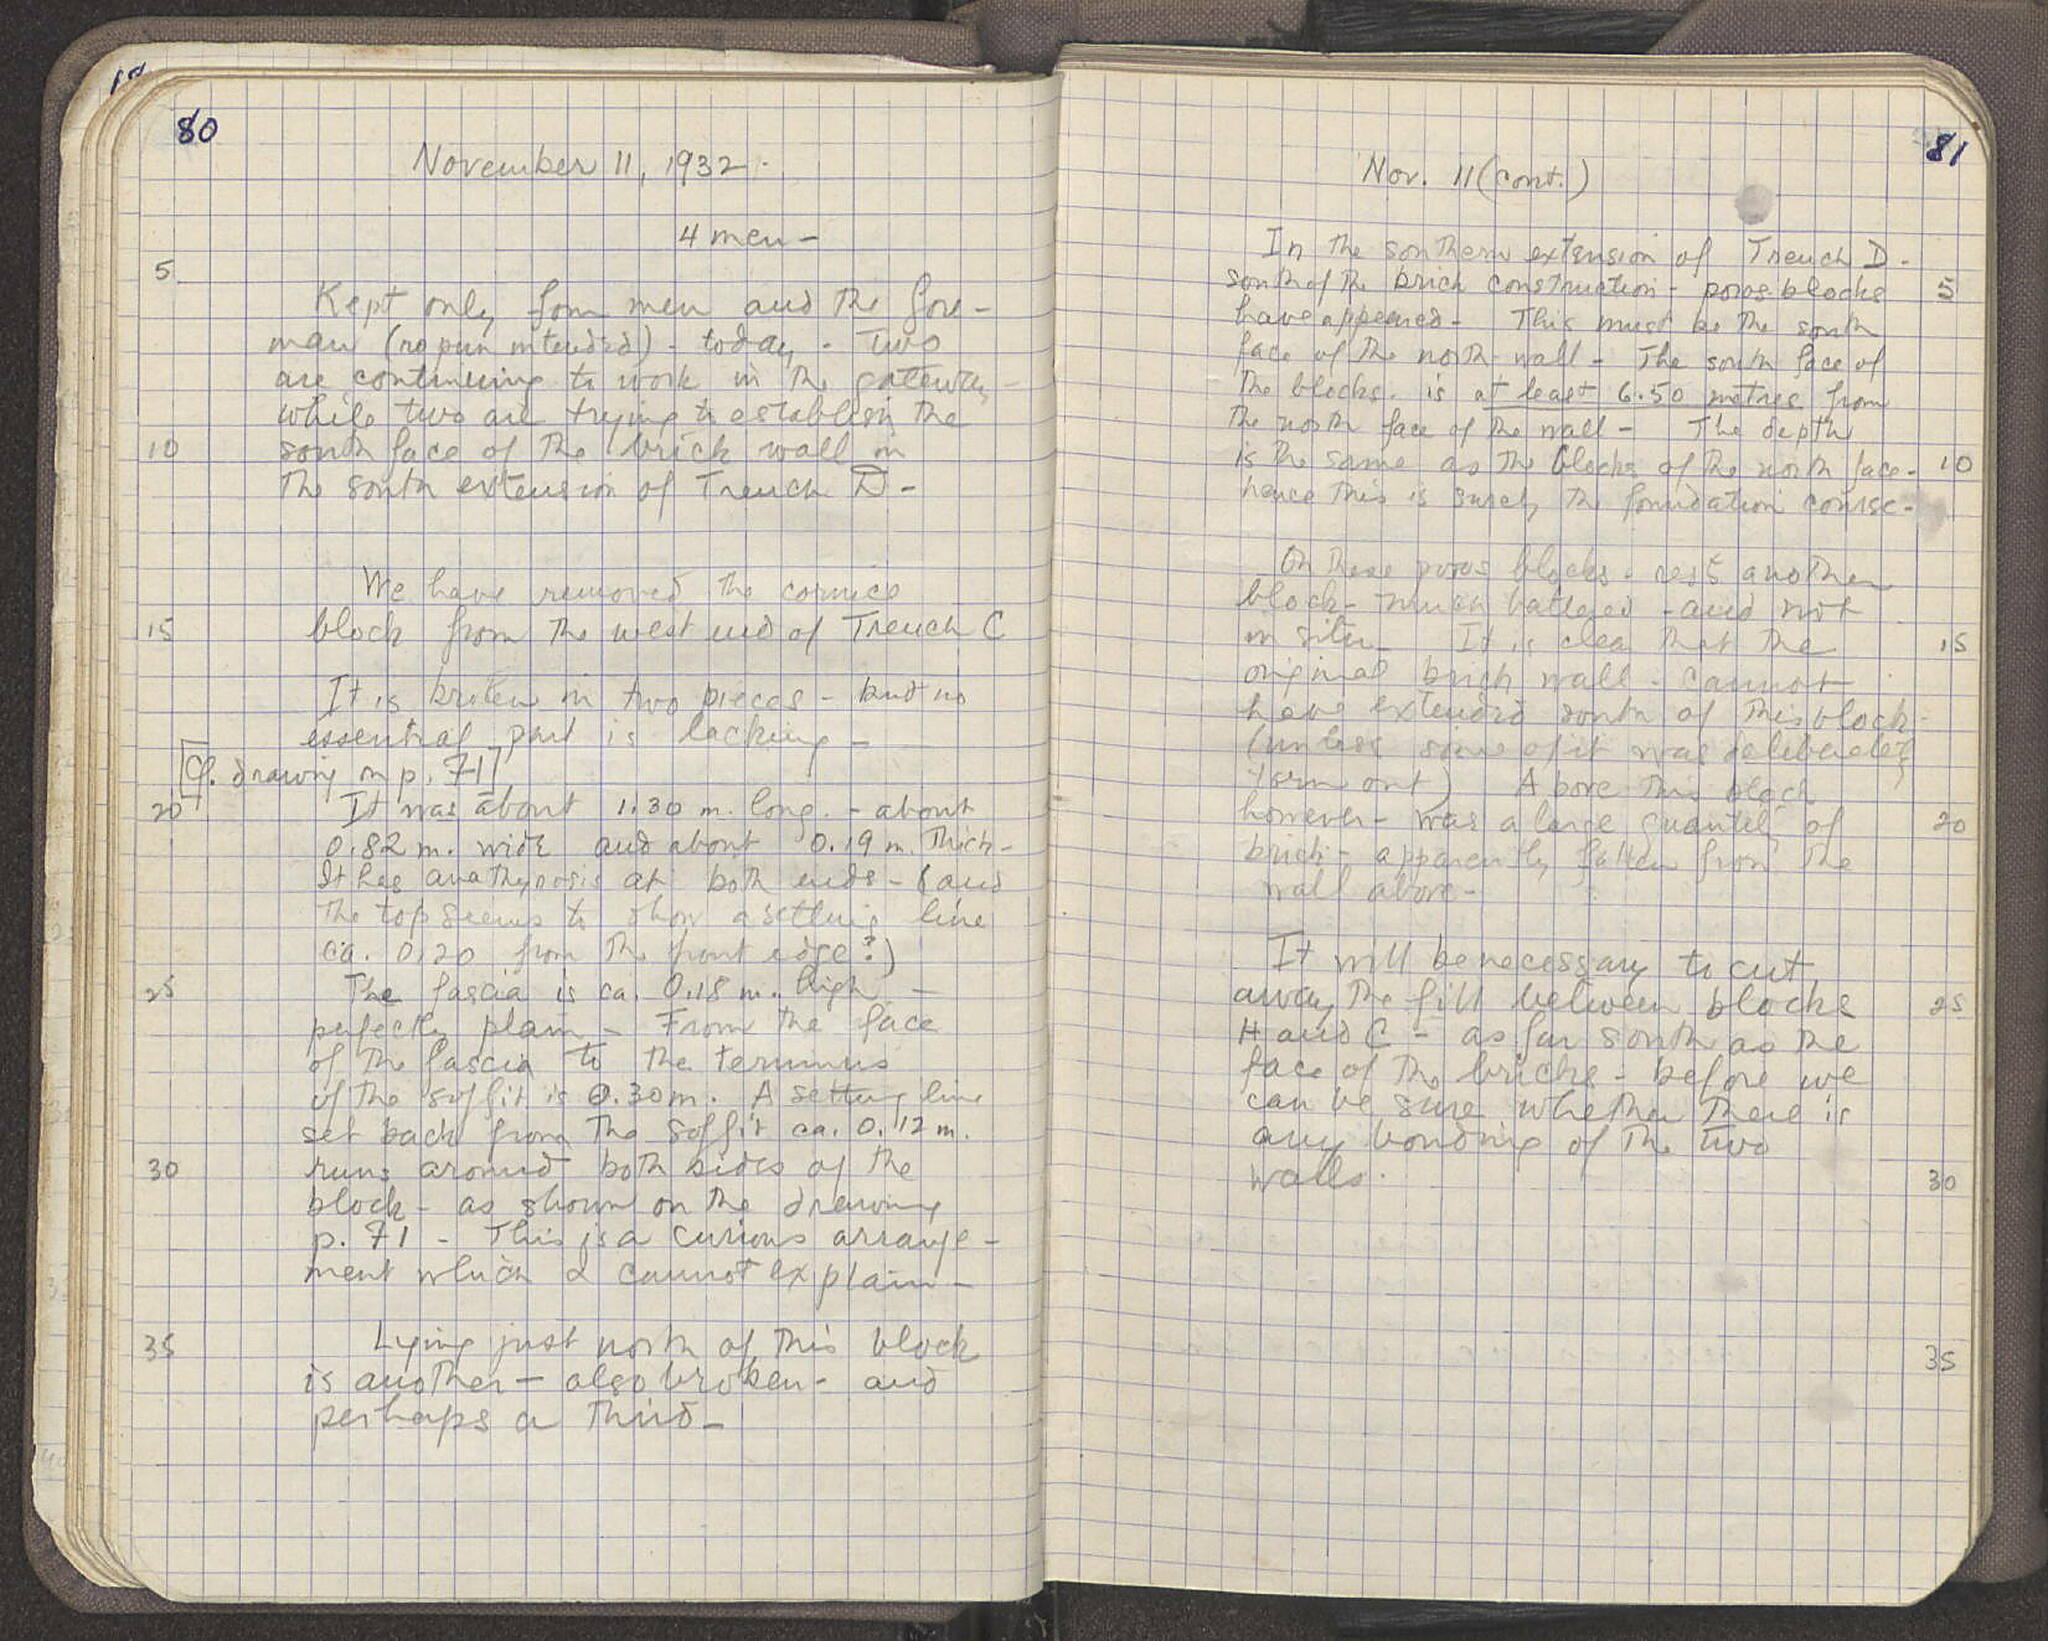 80
November 11, 1932.
4 men -
5
Kept only four men and the fore-
man (no pun intended) - today - Two
are continuing to work in the gateway -
while two are trying to establish the
10 south face of the brick wall in
the south extension of Trench D -
We have removed the cornice
15 block from the west end of Trench C
It is broken in two pieces - but no
essential part is lacking -
[Cf. drawing on p. 71]
20 It was about 1.30 m. long. - about
0.82 m. wide and about 0.19 m. thick -
It has anathyrosis at both ends - (and
the top seems to show a setting line
ca. 0.20 from the front edge?)
25 The fascia is ca. 0.18 m. high -
perfectly plain - From the face
of the fascia to the terminus
of the soffit is 0.30 m. A setting line
set back from the soffit ca. 0.12 m.
30 runs around both sides of the
block - as shown on the drawing
p. 71 - This is a curious arrange-
ment which I cannot explain -
35 Lying just north of this block
is another - also broken - and
perhaps a third -
81
Nov. 11 (cont.)
In the southern extension of Trench D -
south of the brick construction - poros blocks 5
have appeared - This must be the south
face of the north wall - The south face of
the blocks. is at least 6.50 metres from
the north face of the wall - The depth
is the same as the blocks of the north face - 10
hence this is surely the foundation course -
On these poros blocks - rest another
block - much battered - and not
in situ - It is clear that the 15
original brick wall - cannot
have extended south of this block -
(unless some of it was deliberately
torn out) Above this block
however - was a large quantity of 20
brick - apparently fallen from the
wall above -
It will be necessary to cut
away the fill between blocks 25
H and C - as far south as the
face of the bricks - before we
can be sure whether there is
any bonding of the two
walls. 30
35